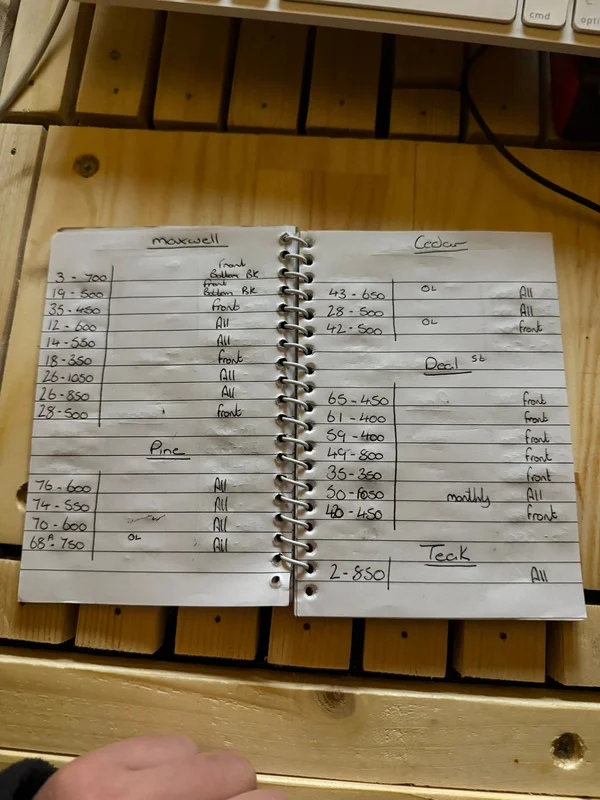 cmd
opti
maxwell
Front
3 - 700 Bottom Bk
Front
19 - 500 Bottom Bk
35 - 450 Front
12 - 600 All
14 - 550 All
18 - 350 Front
26 - 1050 All
26 - 850 All
28 - 500 Front
Pine
76 - 600 All
74 - 550 All
70 - 600 All
68A - 750 OL All
Cedar
43 - 650 OL All
28 - 500 All
42 - 500 OL Front
Deal St
65 - 450 Front
61 - 400 Front
59 - 400 Front
49 - 800 Front
35 - 360 Front
50 - 1050 monthly All
- 450 Front
Teak
2 - 850 All